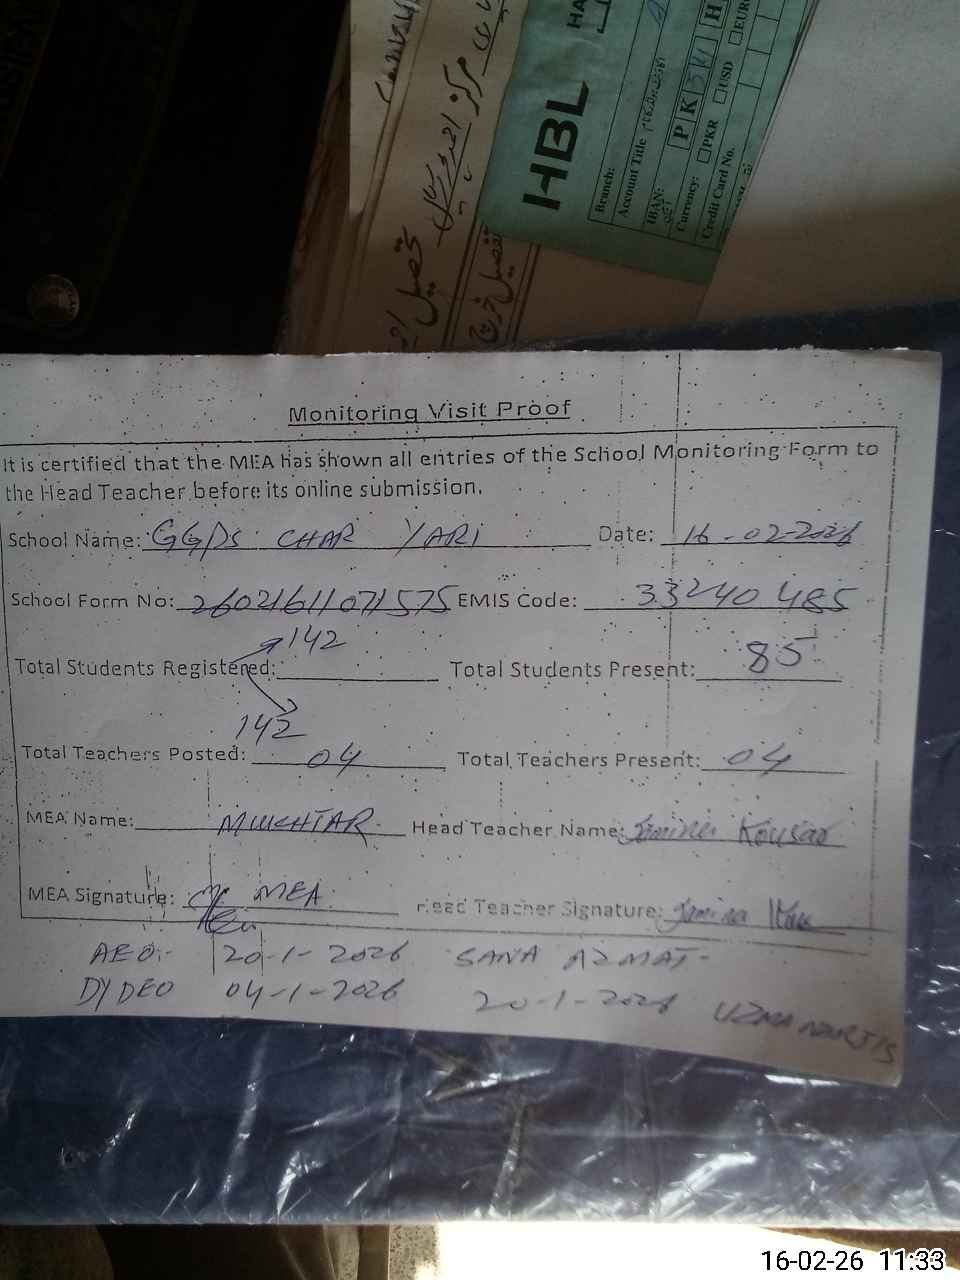 HBL
HA
Branch:
Account Title
IBAN: PK
Currency: PKR USD EUR
Credit Card No.
تحصیل
مرکز احمد پور سیال
Monitoring Visit Proof
It is certified that the MEA has shown all entries of the School Monitoring Form to
the Head Teacher before its online submission.
School Name: GGPS CHAR YARI Date: 16-02-2026
School Form No: 26021611071575 EMIS Code: 33240485
142
Total Students Registered: Total Students Present: 85
142
Total Teachers Posted: 04 Total Teachers Present: 04
MEA Name: MUKHTAR Head Teacher Name: Kousar
MEA Signature: MEA Head Teacher Signature:
AEO:- 20-1-2026 SANA AZMAT-
DY DEO 04-1-2026 20-1-2026 UZMA
16-02-26 11:33